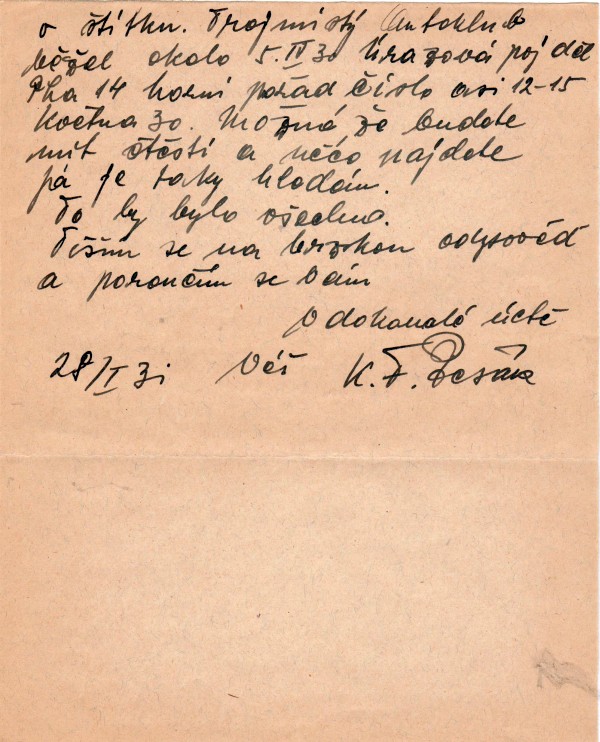 o štítku. Trojmístý Autoklub
běžel okolo 5. IV 30 Úrazová poj děl
Pha 14 horní pořad číslo asi 12-15
Května 30. Možná že budete
mít štěstí a něco najdete
já je taky hledám.
To by bylo všechno.
Těším se na brzkou odpověď
a poroučím se Vám
V dokonalé úctě
28/I 31 Váš K. F.